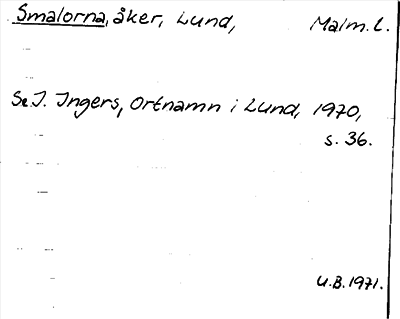 Smalorna, åker, Lund, Malm. l.
Se I. Ingers, Ortnamn i Lund, 1970,
s. 36.
U.B. 1971.